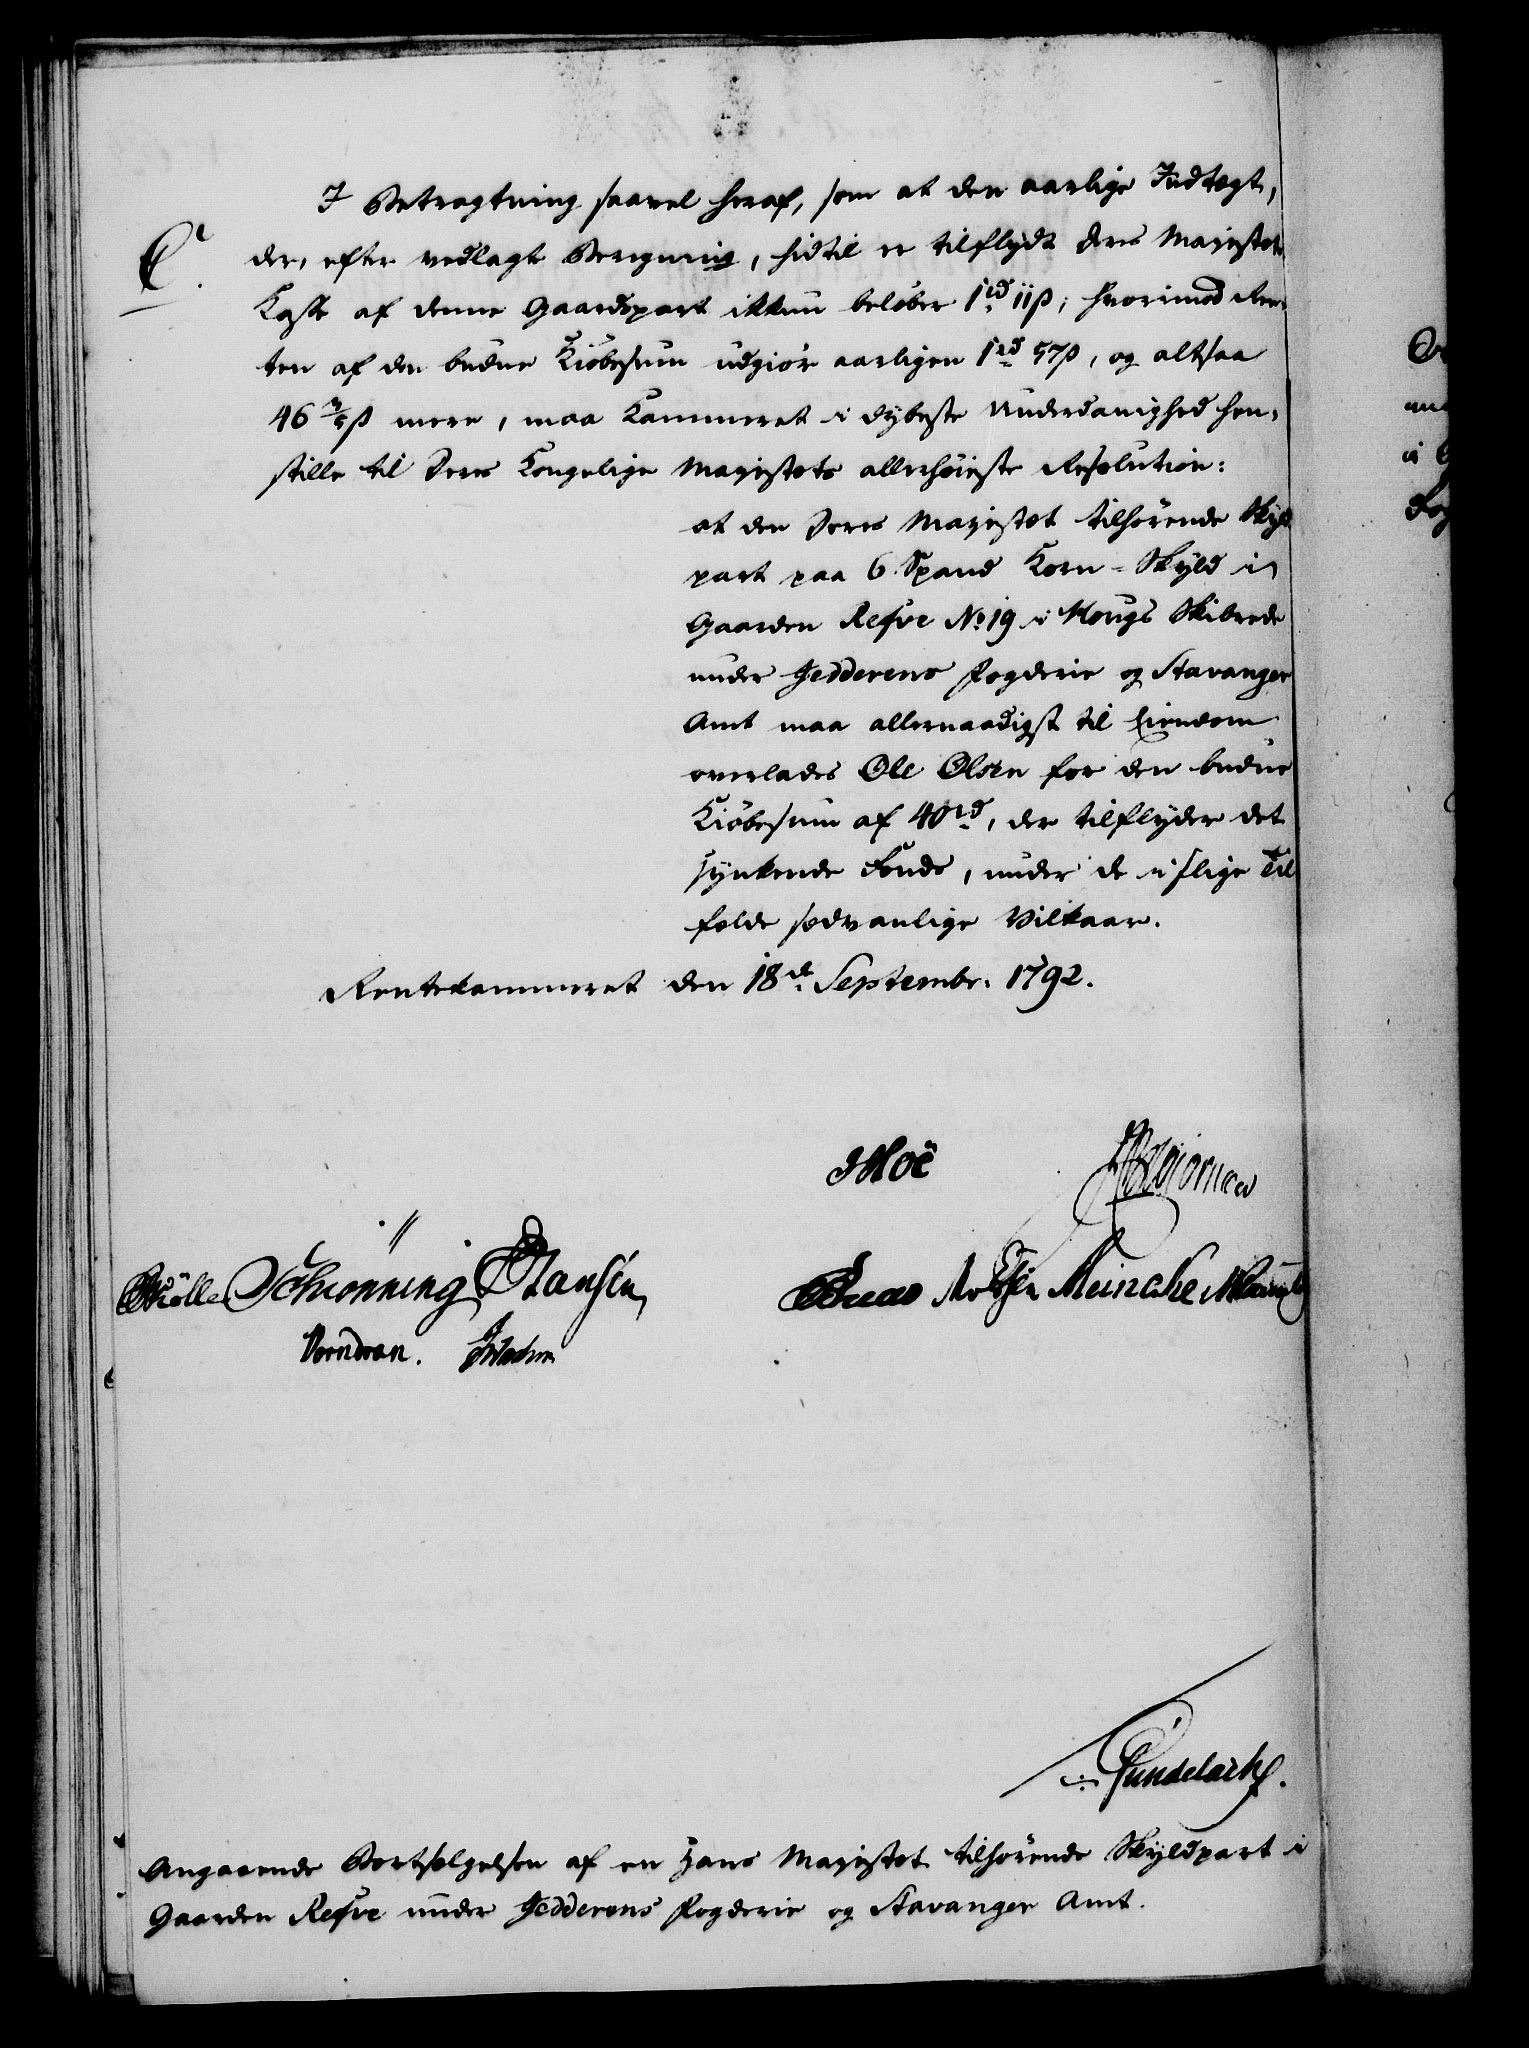 I Betragtning saavel heraf, som at den aarlige Indtægt,
C.
der, efter vedlagte Beregning, hidtil er tilflydt Deres Majestets
Kasse af denne Gaardspart ikkun beløber 1 rd 11 β; hvorimod Ren-
ten af den budne Kiöbesum udgiör aarligen 1 rd 57 β, og altsaa
46 β mere, maa Kammeret i dybeste Underdanighed hen-
stille til Deres Kongelige Majestets allerhöieste Resolution:
at den Deres Majestet tilhörende Skyld
part paa 6 Spand Korn-Skyld i
Gaarden Refve No 19 i Hougs Skibrede
under Jedderens Fogderie og Stavanger
Amt maa allernaadigst til Eiendom
overlades Ole Olsen for den budne
Kiöbesum af 40 rd, der tilflyder det
synkende Fond, under de i slige Til
fælde sædvanlige Vilkaar.
Rentekammeret den 18de Septembr. 1792.
Hoë
Möller Schiönning Hansen
Meincke
Verndran.
Pundelach.
Angaaende Bortsælgelsen af en Hans Majestet tilhörende Skyldpart i
Gaarden Refve under Jedderens Fogderie og Stavanger Amt.